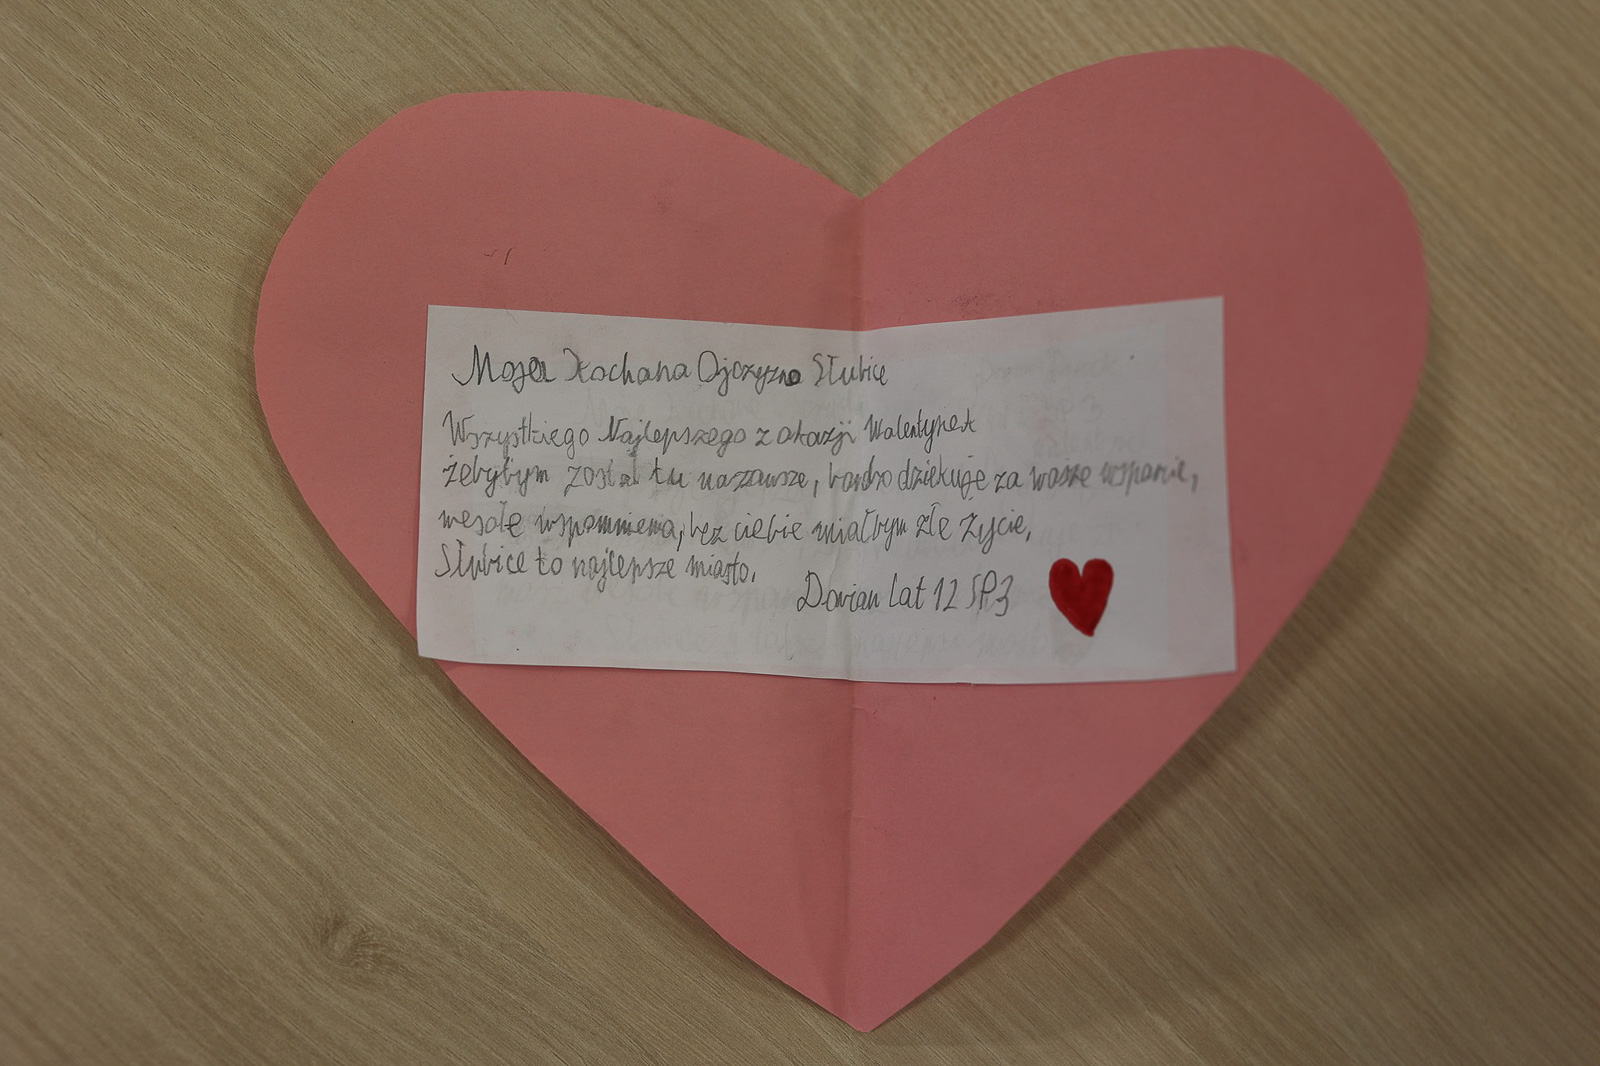 Moja Kochana Ojczyzno Słubice
Wszystkiego Najlepszego z okazji Walentynek
żebybym został tu nazawsze, bardzo dziękuje za wasze wsparcie,
wesołe wspomniena, bez ciebie miałbym złe życie,
Słubice to najlepsze miasto.
Dorian lat 12 SP3